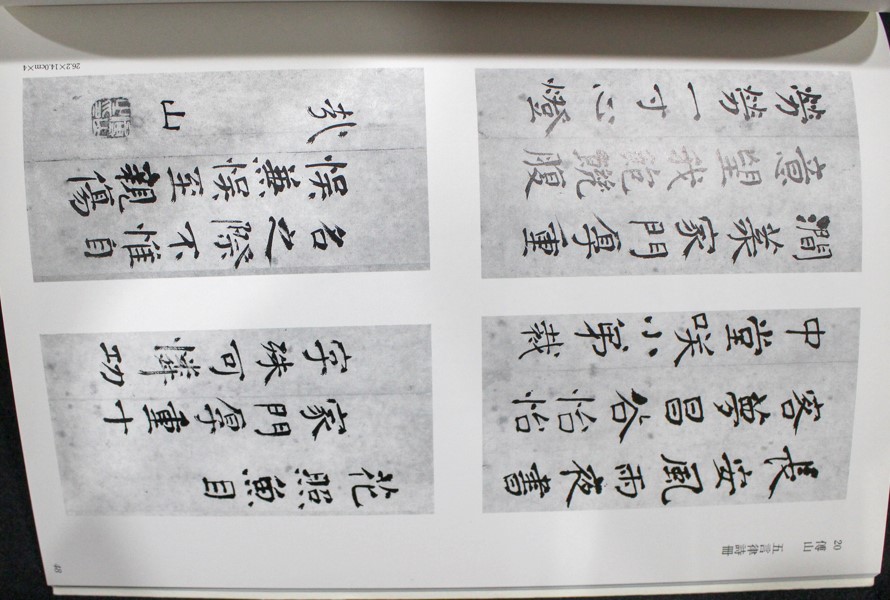 20 傅山　五言律詩冊
長安風雨夜書
客夢昌谷怡怡
中堂咲小弟裁
澗菉家門厚重
意望我飽饑腹
勞勞一寸心燈
花照魚目
家門厚重十
字殊可憐功
名之際不惟自
悞兼悞至親傷
哉
山
26.2×14.0cm×4
48